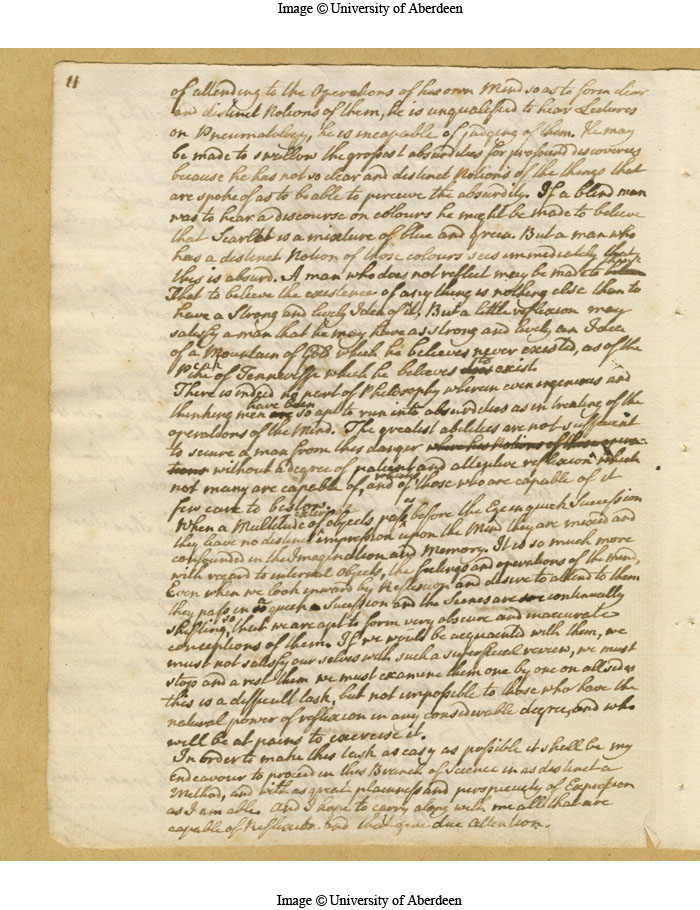 Image © University of Aberdeen
11
of attending to the Operations of his own Mind so as to form clear
and distinct Notions of them, he is unqualified to hear Lectures
on Pneumatology, he is incapable of judging of them. He may
be made to swallow the grossest absurdities for profound discoveries
because he has not so clear and distinct Notions of the things that
are spoke of as to be able to perceive the absurdity. If a blind man
was to hear a discourse on colours he might be made to believe
that Scarlet is a mixture of blue and green. But a man who
has a distinct Notion of those colours sees immediately that
this is absurd. A man who does not reflect may be made to
That to believe the existence of any thing is nothing else than to
have a strong and lively Idea of it. But a little reflexion may
satisfy a man that he may have as strong and lively an Idea
of a Mountain of Gold which he believes never existed, as of the
Peak of Tenneriffe which he believes to exist
There is indeed no part of Philosophy wherein even ingenious and
thinking men have been so apt to run into absurdities as in treating of the
operations of the Mind. The greatest abilities are not sufficient
to secure a man from this danger where his Notions of these opera-
tions without a degree of patient and attentive reflexion which
not many are capable of, and of those who are capable of it
few care to bestow.
When a Multitude of objects pass before the Eye in quick Succession
they leave no distinct impression upon the Mind they are mixed and
confounded in the Imagination and Memory. It is so much more
with regard to internal Objects, the feelings and operations of the Mind,
Even when we look inward by Reflexion and desire to attend to them
they pass in so quick a Sucession and the Scenes are continually
shifting, so that we are apt to form very obscure and inaccurate
conceptions of them. If we would be acquainted with them, we
must not satisfy our selves with such a superficial review, we must
stop and arest them we must examine them one by one on all sides
this is a difficult task, but not impossible to those who have the
natural power of reflexion in any considerable degree, and who
will be at pains to exercise it.
In order to make this task as easy as possible it shall be my
Endeavour to proceed in this Branch of Science in as distinct a
Method, and with as great plainness and perspicuity of Expression
as I am able. And I hope to carry along with me all that are
capable of Reflexion and that give due attention.
Image © University of Aberdeen